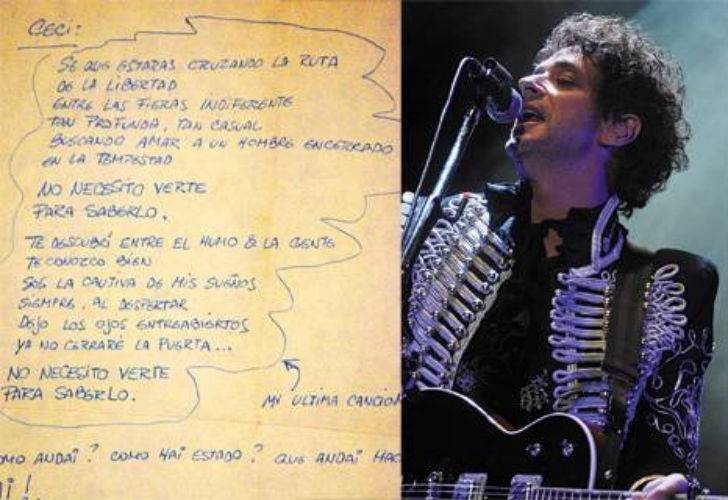 CECI:
SE QUE ESTARAS CRUZANDO LA RUTA
DE LA LIBERTAD
ENTRE LAS FIERAS INDIFERENTE
TAN PROFUNDA, TAN CASUAL
BUSCANDO AMAR A UN HOMBRE ENCERRADO
EN LA TEMPESTAD
NO NECESITO VERTE
PARA SABERLO.
TE DESCUBRÍ ENTRE EL HUMO & LA GENTE
TE CONOZCO BIEN
SOS LA CAUTIVA DE MIS SUEÑOS
SIEMPRE, AL DESPERTAR
DEJO LOS OJOS ENTREABIERTOS
YA NO CERRARÉ LA PUERTA...
NO NECESITO VERTE
PARA SABERLO.
MI ULTIMA CANCION
OMO ANDAÍ? COMO HAI ESTADO? QUE ANDAI HAC
AI!